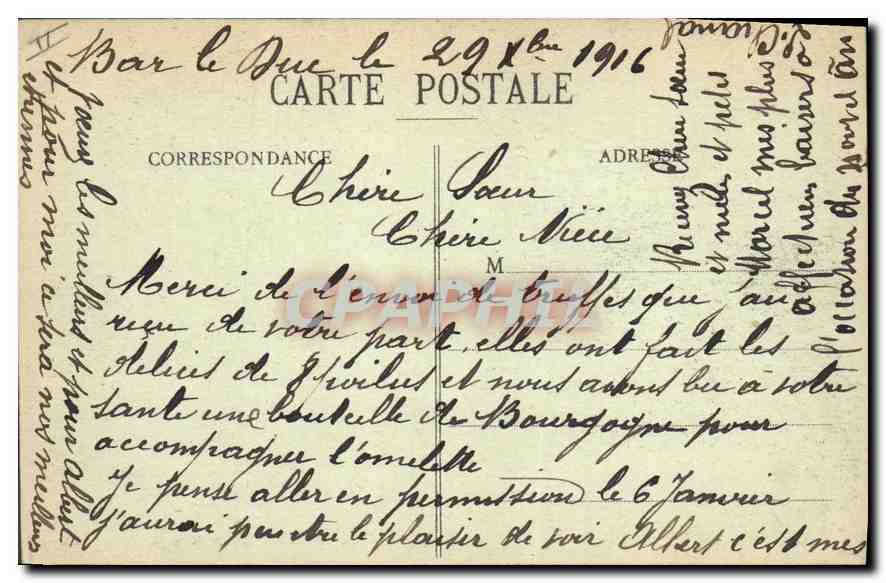 Bar le Duc le 29 Xbre 1916
CARTE POSTALE
CORRESPONDANCE
ADRESSE
M
Chère Sœur
Chère Nièce
Merci de l'envoi de truffes que j'ai
reçu de votre part, elles ont fait les
delices de 8 poilus et nous avons bu à votre
sante une bouteille de Bourgogne pour
accompagner l'omelette
Je pense aller en permission le 6 Janvier
j'aurai peu etre le plaisir de voir Albert c'est mes
vœux les meilleurs et pour Albert
et pour moi ce sera nos meilleurs
etrennes
Chere Sœur
et nièce et petit
Marcel mes plus
affectueux baisers a
l'occation du Nouvel an
CPAPHIL